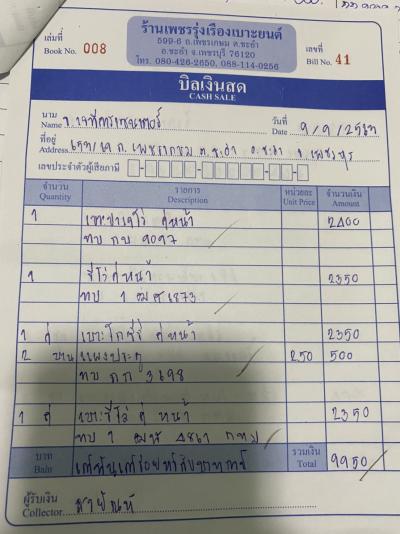 เล่มที่
Book No. 008
ร้านเพชรรุ่งเรืองเบาะยนต์
599-6 ถ.เพชรเกษม ต.ชะอำ
อ.ชะอำ จ.เพชรบุรี 76120
โทร. 080-426-2650, 088-114-0256
เลขที่
Bill No. 41
บิลเงินสด
CASH SALE
นาม
Name
วันที่
Date 9/9/2567
ที่อยู่
Address ถ. เพชรเกษม ต. ชะอำ อ. ชะอำ จ. เพชรบุรี
เลขประจำตัวผู้เสียภาษี
จำนวน รายการ หน่วยละ จำนวนเงิน
Quantity Description Unit Price Amount
1 คู่หน้า 2400
ทบ กบ 9097
1 ซีโร่ คู่หน้า 2350
ทบ 1 ฒศ 1873
1 คู่ เบาะ คู่หน้า 2350
2 บาน แผงประตู 250 500
ทบ กก 3698
1 คู่ เบาะซีโร่ คู่ หน้า 2350
ทบ 1 4861 กทม
บาท
Baht เก้าพันเก้าร้อยห้าสิบบาท
รวมเงิน
Total 9950
ผู้รับเงิน
Collector สายัณห์